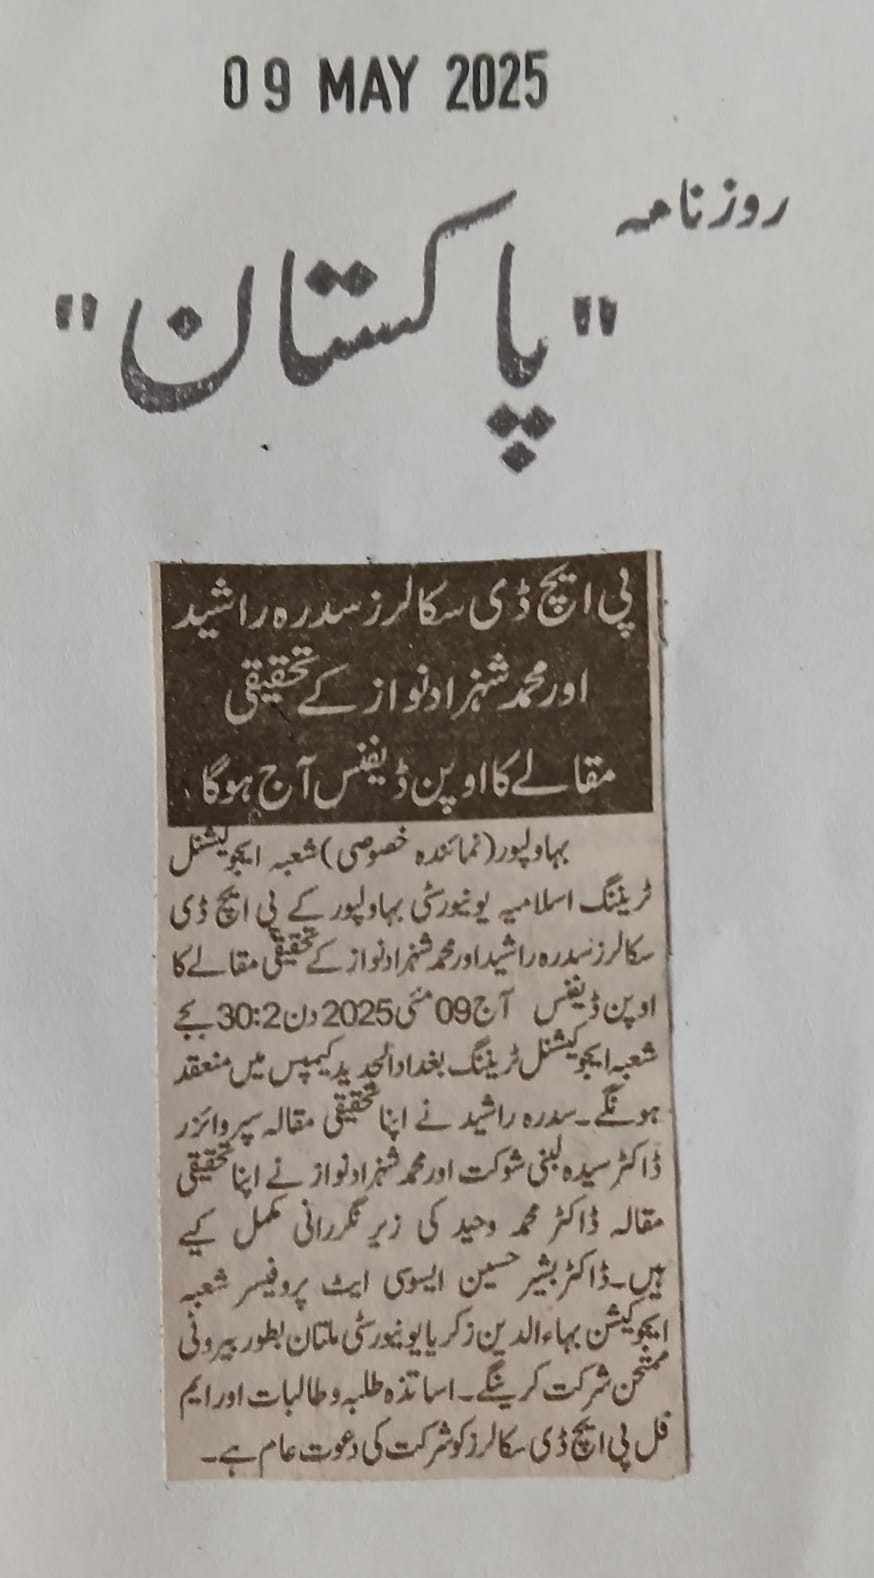 09 MAY 2025
روزنامہ
"پاکستان"
پی ایچ ڈی سکالرز سدرہ راشید
اور محمد شہزاد نواز کے تحقیقی
مقالے کا اوپن ڈیفنس آج ہوگا
بہاولپور (نمائندہ خصوصی) شعبہ ایجوکیشنل
ٹریننگ اسلامیہ یونیورسٹی بہاولپور کے پی ایچ ڈی
سکالرز سدرہ راشید اور محمد شہزاد نواز کے تحقیقی مقالے کا
اوپن ڈیفنس آج 09 مئی 2025 دن 30:2 بجے
شعبہ ایجوکیشنل ٹریننگ بغداد الجدید کیمپس میں منعقد
ہونگے۔ سدرہ راشید نے اپنا تحقیقی مقالہ سپروائزر
ڈاکٹر سیدہ لبنی شوکت اور محمد شہزاد نواز نے اپنا تحقیقی
مقالہ ڈاکٹر محمد وحید کی زیر نگرانی مکمل کیے
ہیں۔ ڈاکٹر بشیر حسین ایسوسی ایٹ پروفیسر شعبہ
ایجوکیشن بہاءالدین زکریا یونیورسٹی ملتان بطور بیرونی
ممتحن شرکت کرینگے۔ اساتذہ طلبہ و طالبات اور ایم
فل پی ایچ ڈی سکالرز کو شرکت کی دعوت عام ہے۔